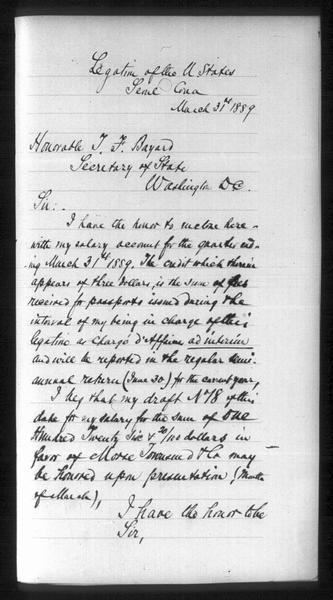 Legation of the U States
Seoul Corea
March 31st 1889
Honorable T. F. Bayard
Secretary of State
Washington D.C.
Sir:
I have the honor to inclose here-
with my salary account for the quarter end-
ing March 31st 1889. The credit which therein
appears of three dollars, is the sum of fees
received for passports issued during the
interval of my being in charge of this
legation as Chargé d'Affaires ad interim
and will be reported in the regular semi-
annual return (June 30) for the current year,
I beg that my draft No 18 of this
date for my salary for the sum of One
Hundred Twenty Six & /100 dollars in
favor of Morse Townsend & Co may
be honored upon presentation (Month
of March),
I have the honor to be
Sir,